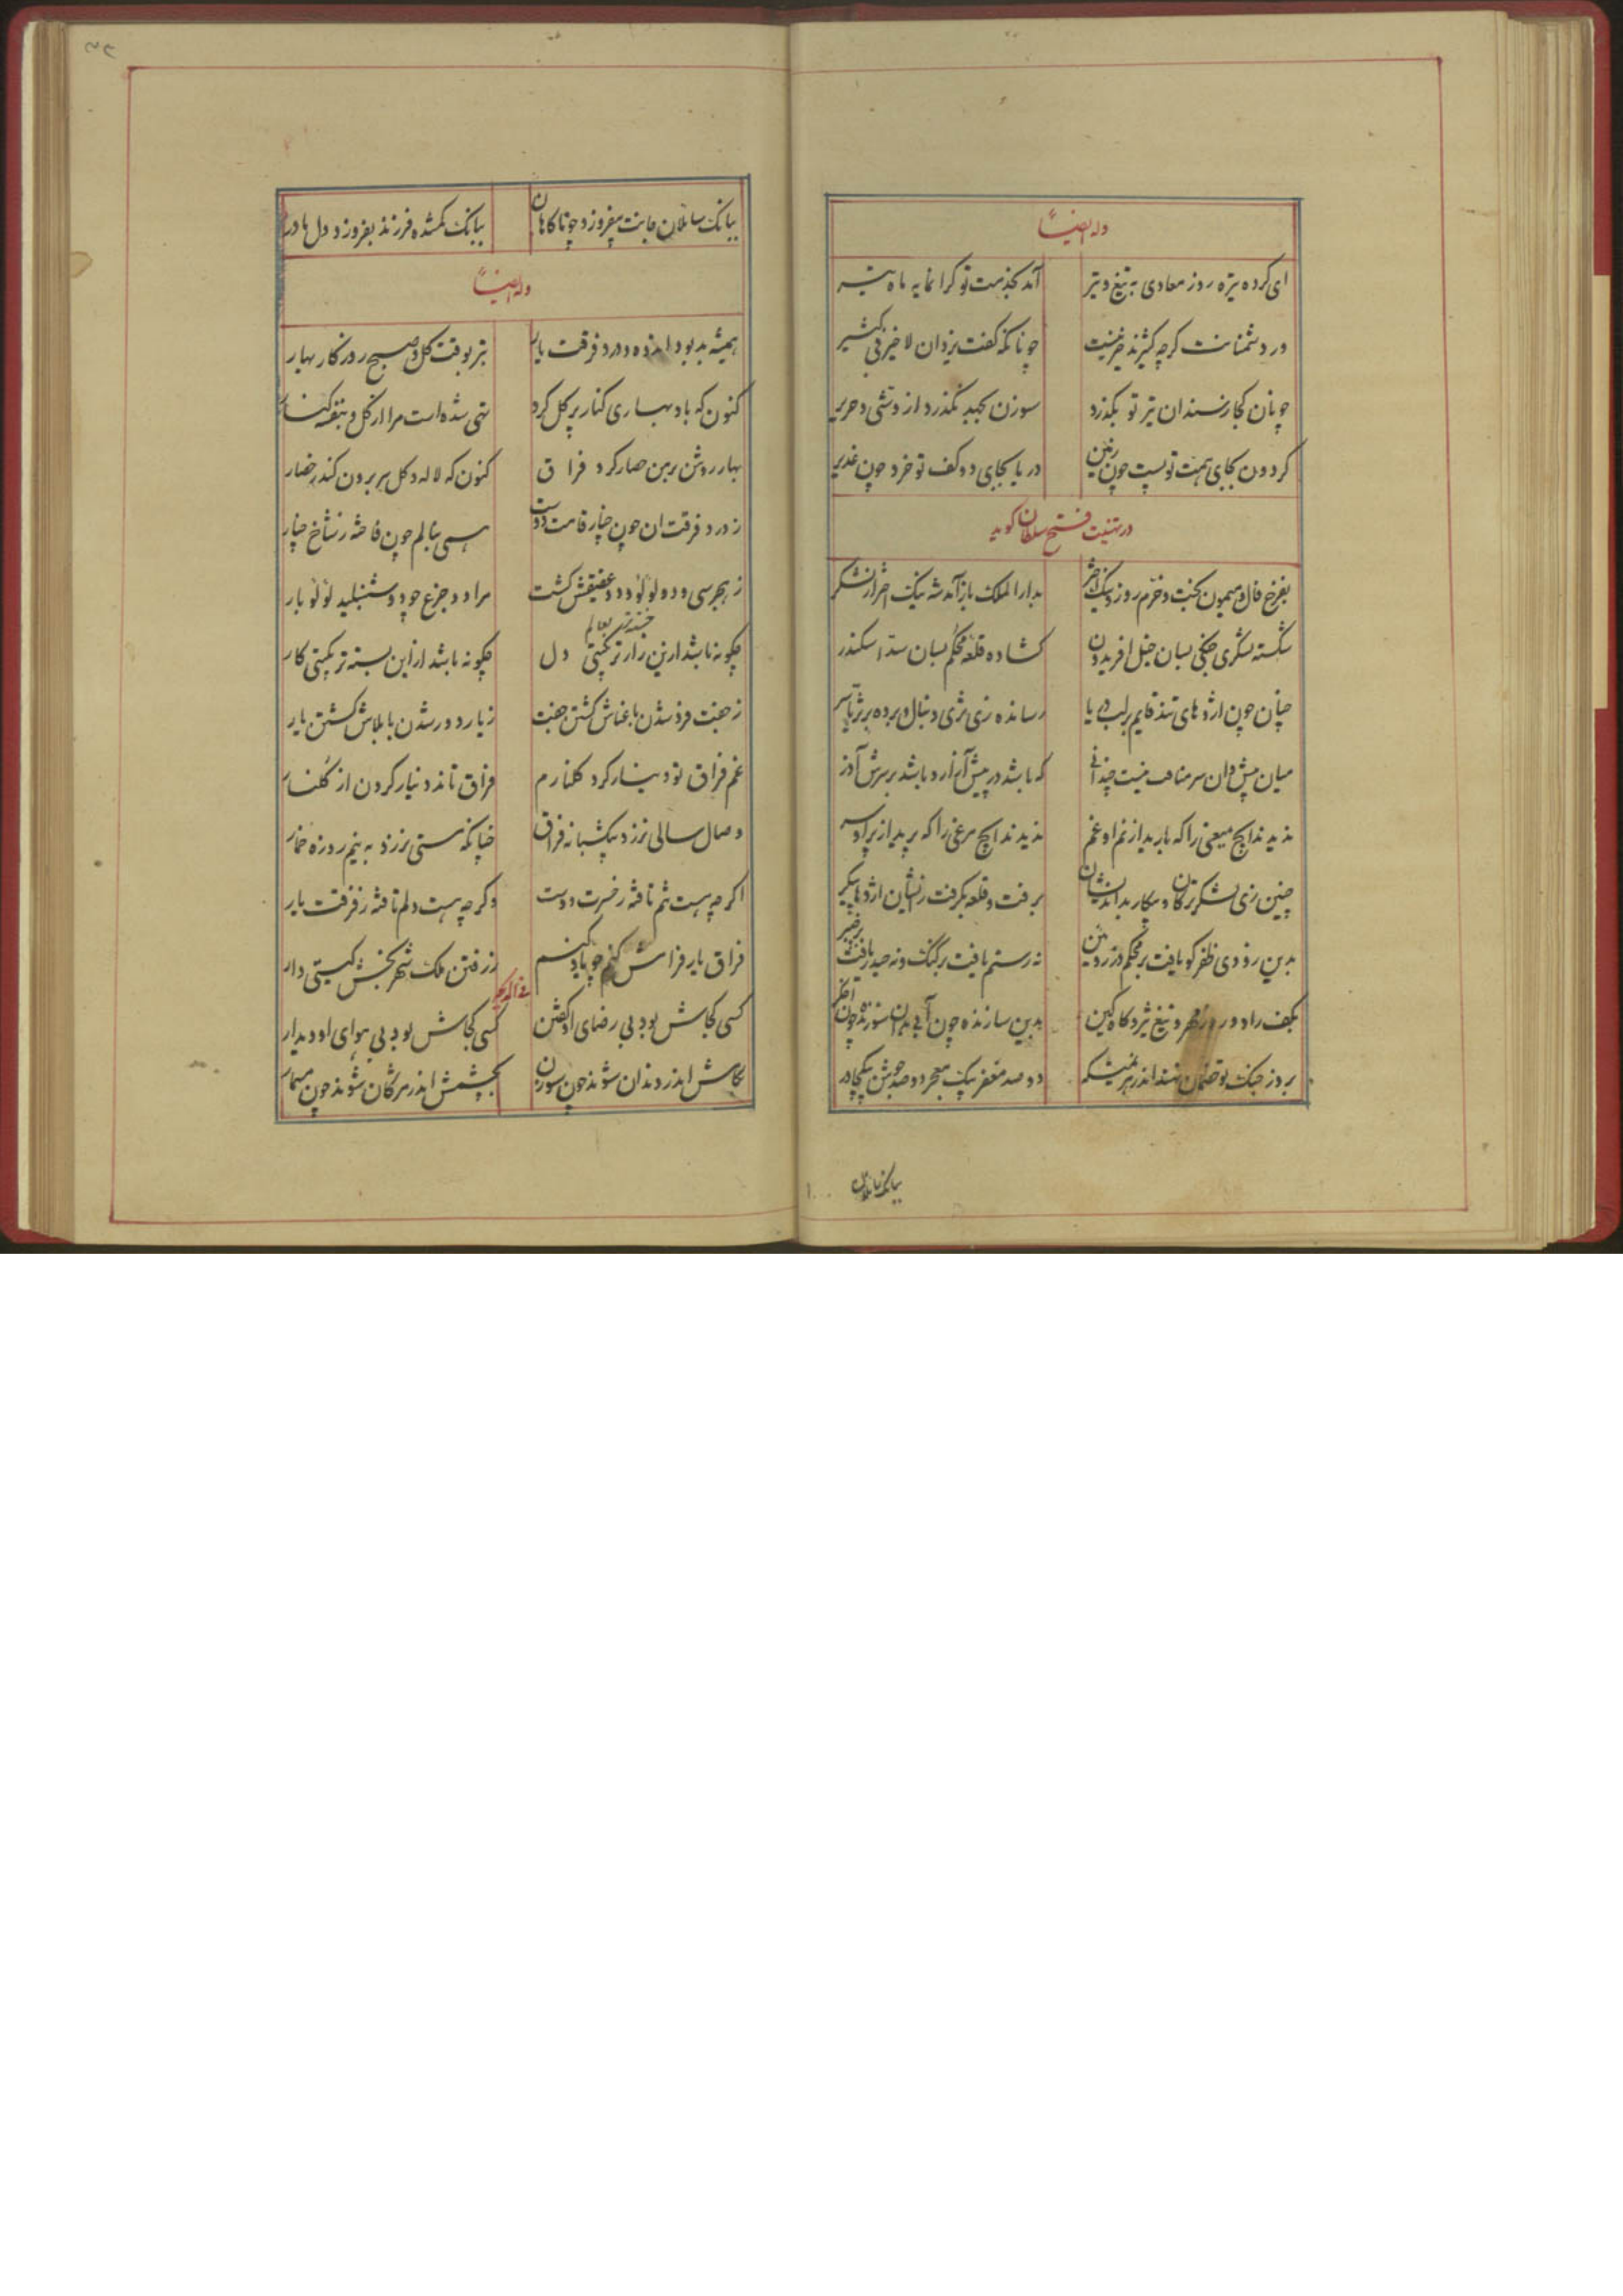 وله ایضاً
ای کرده تیره روز معادی به تیغ و تیر آمد بخدمت تو گرانمایه ماه تیر
در دشمنانت گرچه کثیرند خیر نیست چونانکه گفت یزدان لاخیر فی کثیر
چونان کجا ز سندان تیر تو بگذرد سوزن بجهد نگذرد از وشی و حریر
گردون بجای همت تو پست چون زمین دریا بجای دو کف تو خرد چون غدیر
در تهنیت فتح سلطان گوید
بفرخ فال و میمون بخت و خرم روز و نیک اختر بدارالملک باز آمد شه نیک اختر از لشکر
شکسته لشکری جنگی بسان خیل افریدون گشاده قلعه محکم بسان سد اسکندر
چنان چون اژدهای تند قایم بر لب دریا رسانده زی ثری دنبال و برده بر ثریا سر
میان پیش و آن سر مسافت نیست چندانی که باشد در پیش آزار و باشد بر سرش آذر
ندید ایچ میغی را که بارید از نم او غم ندید ایچ مرغی را که پرید از بر او سر
چنین زی لشکر ترکان و پیکار بداندیشان برفت و قلعه بگرفت زیشان اژدها پیکر
بدین زودی ظفر کو یافت بر محکم دز زرین نه رستم یافت بر گنگ و نه حیدر یافت بر خیبر
بکف راد روز مهر و تیغ تیز گاه کین بدین سازنده چون آبی بدان سوزنده چون اخگر
بروز جنگ تو خصمان نهند اندر هزیمتگه دو صد مغفر بیک معجر دو صد جوشن بیک چادر
بیانک سایلان
بیانک سایلان جانت بیفروزد چوناگاهان بیانک گمشده فرزند بفروزد دل مادر
وله ایضاً
همیشه بد بود اندوه و درد فرقت یار بتر بوقت گل و صبح روزگار بهار
کنون که باد بهاری کنار پر گل کرد تهی شده است مرا از گل و بنفشه کنار
بهار روشن بر من حصار کرد فراق کنون که لاله و گل سر برون کند ز حصار
ز درد فرقت آن چون چنار قامت دوست همی بنالم چون فاخته ز شاخ چنار
ز هجر سی و دو لؤلؤ دو عقیقش گشت مرا دو جزع چو دو شنبلید لؤلؤ بار
چگونه باشد ازین زارتر بگیتی دل چگونه باشد ازین بسته تر بگیتی کار
خسته تر بعالم
ز جفت فرد شدن با عناش گشتن جفت ز یار دور شدن با بلاش گشتن یار
غم فراق تو دینار کرد گلنارم فراق تاند دینار کردن از گلنار
وصال سالی نرزد بیکشبانه فراق چنانکه مستی نرزد به نیم روزه خمار
اگر چه هست تنم تافته ز حسرت دوست وگرچه هست دلم تافته ز فرقت یار
فراق یار فرامش کنم چو یاد کنم ز رفتن ملک شهر بخش گیتی دار
فی المدیحه
کسی کجاش بود بی رضای او گفتن کسی کجاش بود بی هوای او دیدار
بکامش اندر دندان شوند چون سوزن بچشمش اندر مژگان شوند چون مسمار